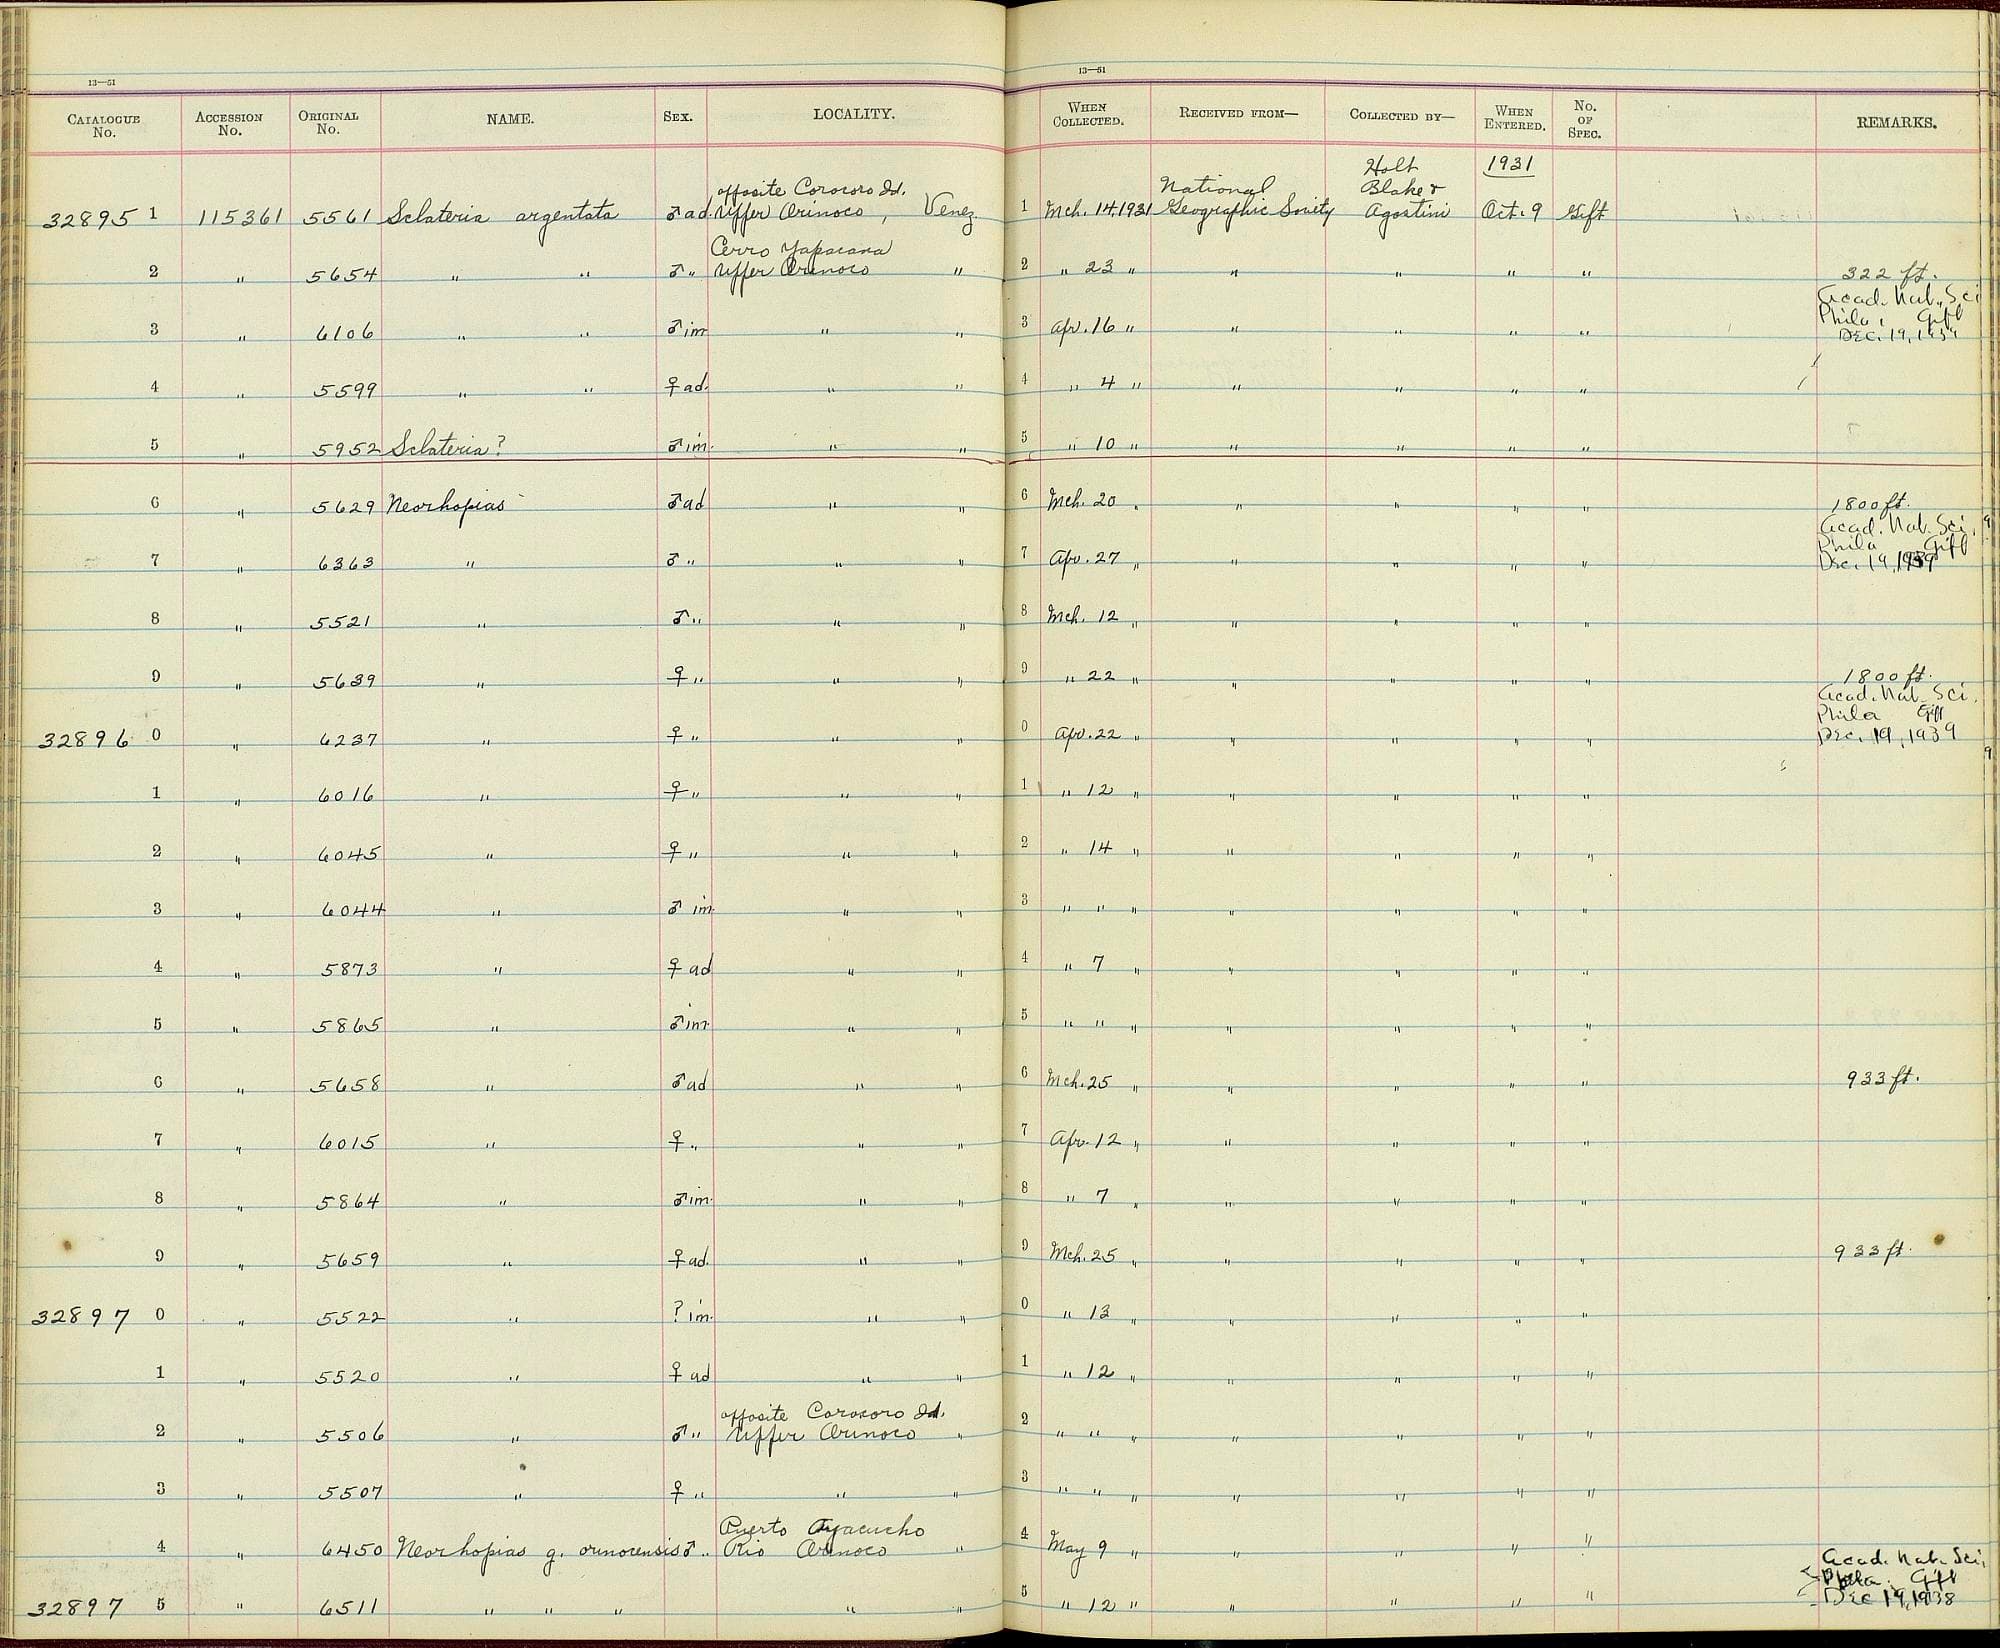 13—51
13—51
CATALOGUE No. ACCESSION No. ORIGINAL No. NAME. SEX. LOCALITY. WHEN COLLECTED. RECEIVED FROM— COLLECTED BY— WHEN ENTERED. No. OF SPEC. REMARKS.
32895 1 115361 5561 Sclateria argentata ♂ ad. opposite Corocoro Id. Upper Orinoco, Venez. 1 Mch. 14, 1931 National Geographic Society Holt Blake & Agostini 1931 Oct. 9 Gift
2 " 5654 " " ♂ " Cerro Yapacana Upper Orinoco " 2 " 23 " " " " " 322 ft.
3 " 6106 " " ♂ im " " 3 Apr. 16 " " " " " Acad. Nat. Sci Phila. Gift Dec. 19, 1939
4 " 5599 " " ♀ ad. " " 4 " 4 " " " " "
5 " 5952 Sclateria? ♂ im. " " 5 " 10 " " " " "
6 " 5629 Neorhopias ♂ ad " " 6 Mch. 20 " " " " " 1800 ft.
7 " 6363 " ♂ " " " 7 Apr. 27 " " " " " Acad. Nat. Sci. Phila Gift Dec. 19, 1939
8 " 5521 " ♂ " " " 8 Mch. 12 " " " " "
9 " 5639 " ♀ " " " 9 " 22 " " " " " 1800 ft.
32896 0 " 6237 " ♀ " " " 0 Apr. 22 " " " " " Acad. Nat. Sci. Phila Gift Dec. 19, 1939
1 " 6016 " ♀ " " " 1 " 12 " " " " "
2 " 6045 " ♀ " " " 2 " 14 " " " " "
3 " 6044 " ♂ im. " " 3 " " " " " " "
4 " 5873 " ♀ ad " " 4 " 7 " " " " "
5 " 5865 " ♂ im. " " 5 " " " " " " "
6 " 5658 " ♂ ad " " 6 Mch. 25 " " " " " 933 ft.
7 " 6015 " ♀ " " " 7 Apr. 12 " " " " "
8 " 5864 " ♂ im. " " 8 " 7 " " " " "
9 " 5659 " ♀ ad. " " 9 Mch. 25 " " " " " 933 ft.
32897 0 " 5522 " ? im. " " 0 " 13 " " " " "
1 " 5520 " ♀ ad " " 1 " 12 " " " " "
2 " 5506 " ♂ " opposite Corocoro Id. Upper Orinoco " 2 " " " " " " "
3 " 5507 " ♀ " " " 3 " " " " " " "
4 " 6450 Neorhopias g. orinocensis ♂ " Puerto Ayacucho Rio Orinoco " 4 May 9 " " " " "
32897 5 " 6511 " " " " " 5 " 12 " " " " " Acad. Nat. Sci. Phila. Gift Dec 19, 1938